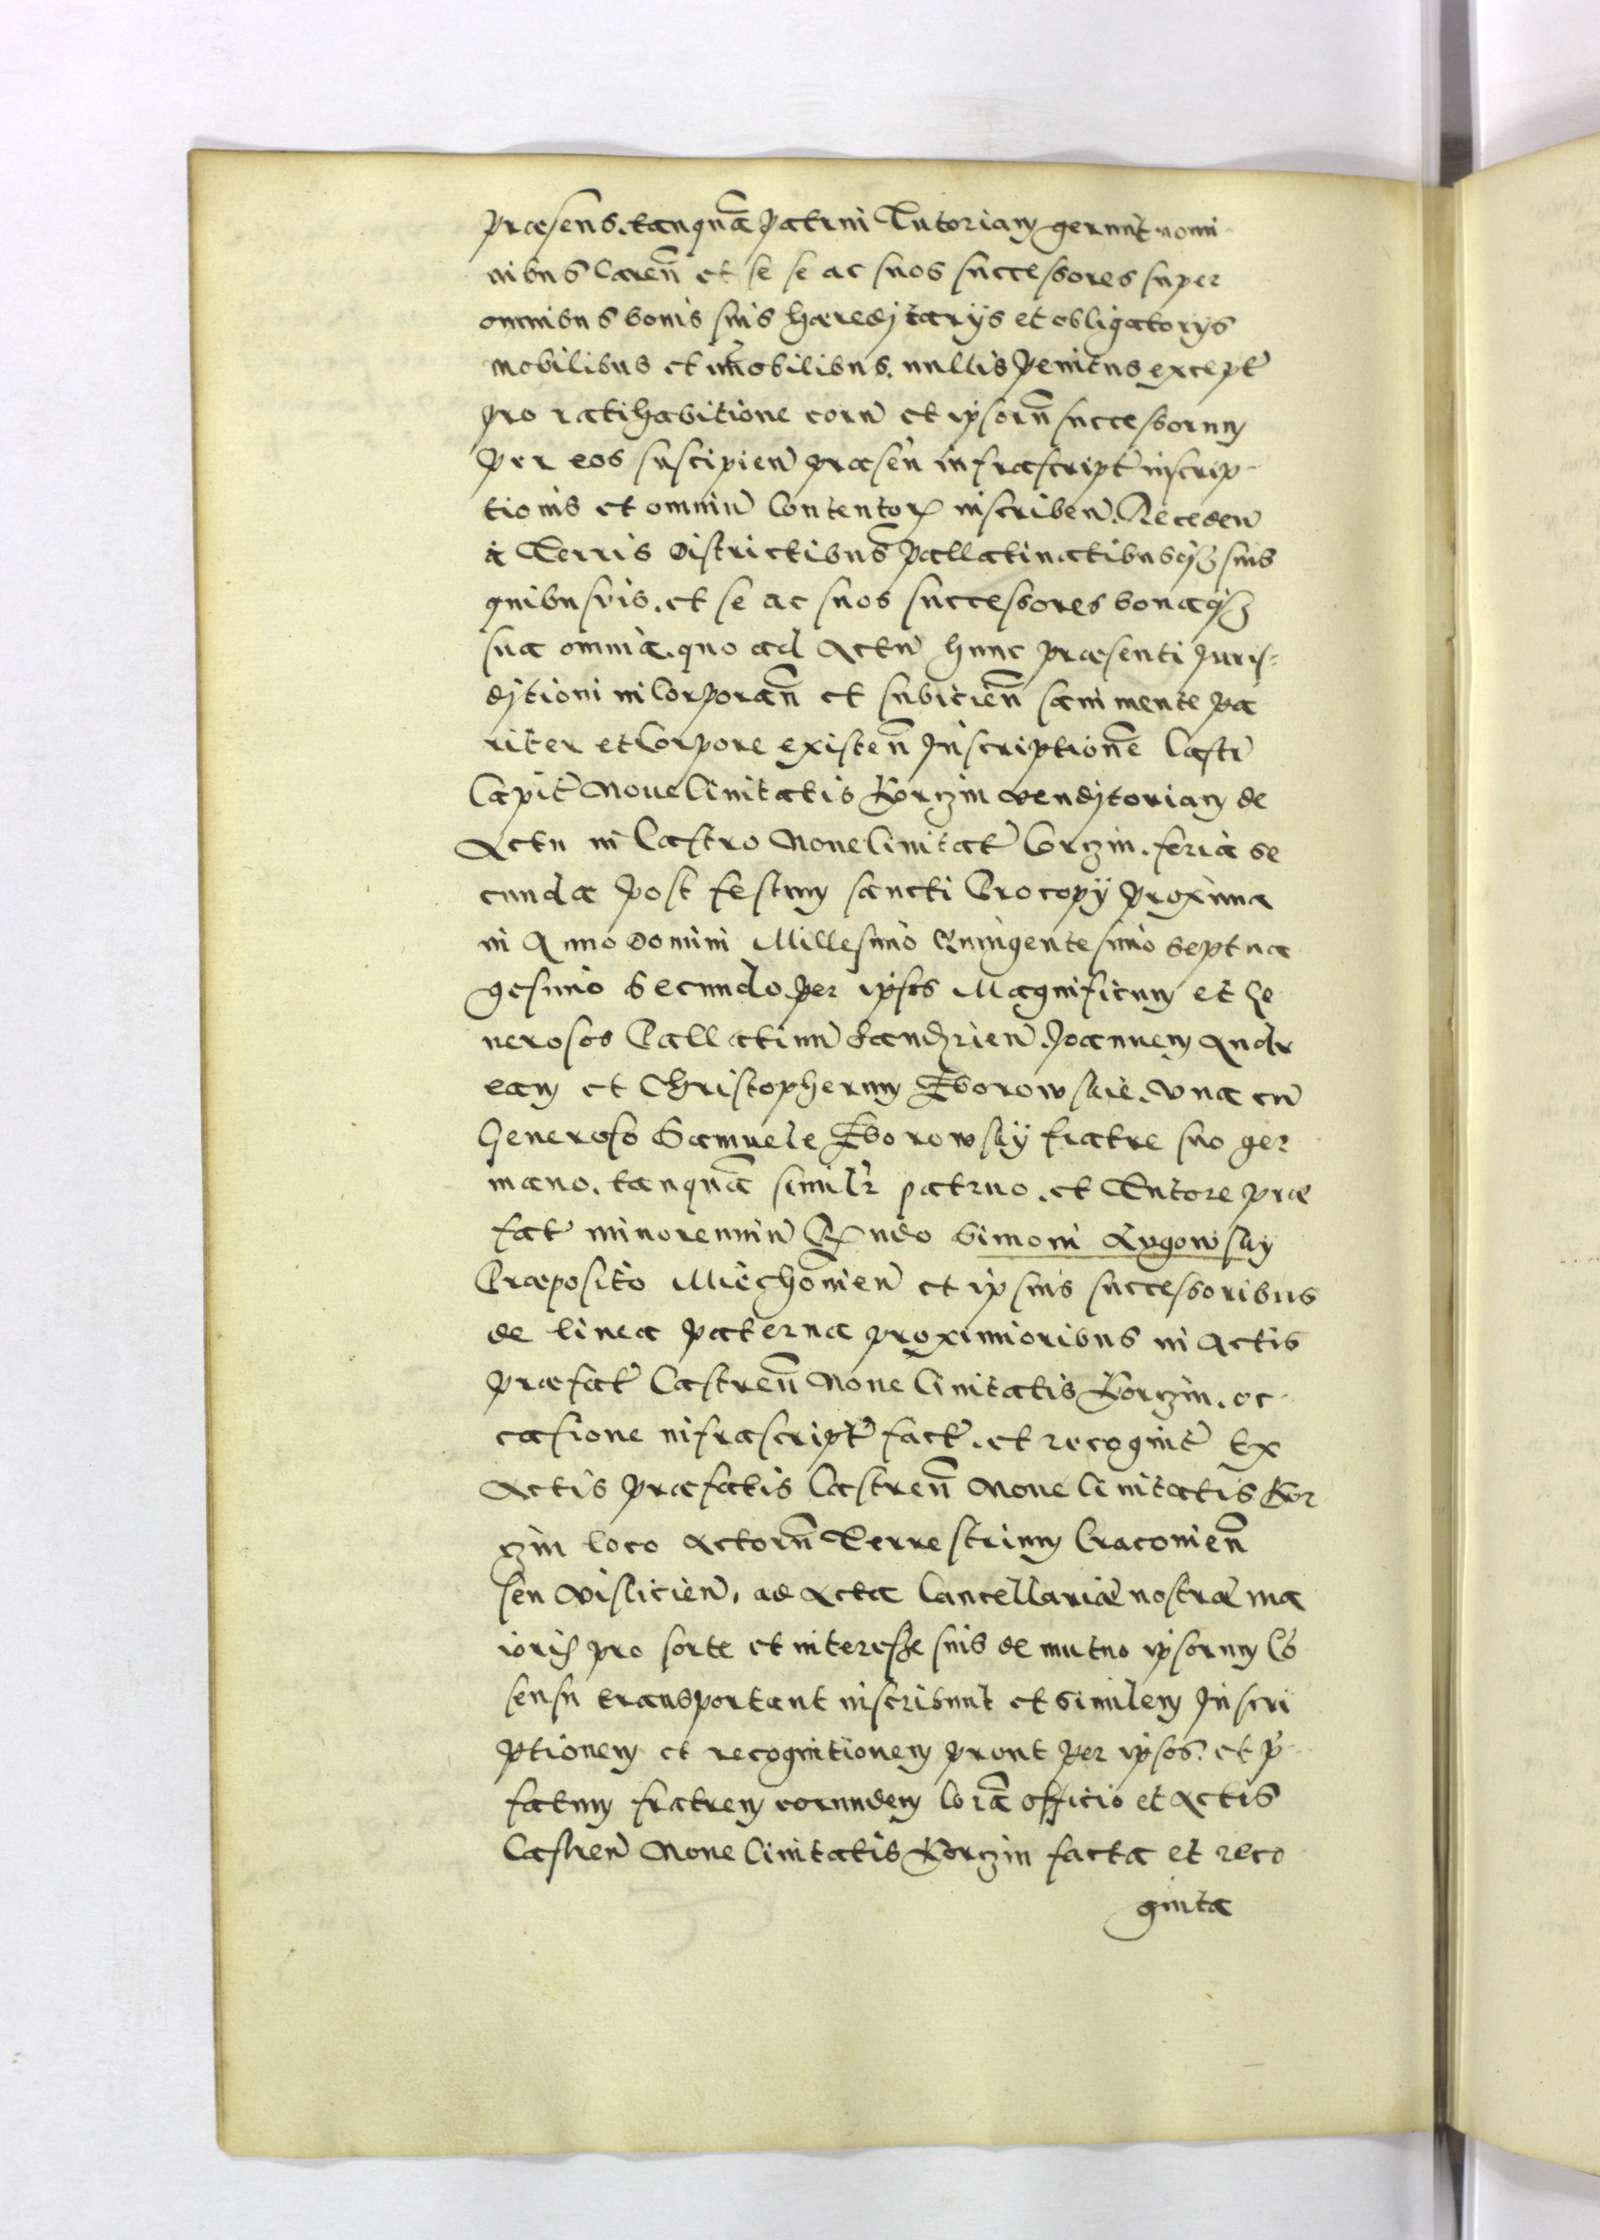 præsens. tanquã patrui Tutoriam gerunt nomi
nibus earen̄ et se se ac suos successores super
omnibus bonis suis hæreditarijs et obligatorijs
mobilibus et im̃obilibus. nullis penitus except̃
pro ratihabitione eorũ et ipsorũ successorum
per eos suscipien̄ præsen̄ infrascript̃ inscrip
tionis et omniũ Contentor̃ inscriben̄. Receden̄
à Terris Districtibus Pallatinatibusq3 suis
quibusvis. et se ac suos successores bonaq3
sua omnia. quo ad Actũ hunc præsenti Juris=
ditioni inCorporan̄ et subicien̄ sani mente pa
riter et Corpore existen̄ Inscriptionẽ Castr̃
Capit̃ Noue Ciuitatis Korczin venditoriam de
Actu in Castro Noue Ciuitat̃ Corczin. feria se
cunda post festum sancti Procopij proxima
in Anno Domini Millesimo Quingentesimo septua
gesimo Secundo. per ipsos Magnificum et Ge
nerosos Pallatinũ Sandzirien̄. Joannem Andr
eam et Christopherum Sborowskie. vna cũ
Generoso Samuele Sborowsky fratre suo ger
mano. tanquã simil̃r patruo. et Tutore præ
fat̃ minorenniũ R̃ndo Simoni Lugowsky
Præposito Miechouien̄ et ipsius successoribus
de linea paterna proximioribus in Actis
præfat̃ Castren̄ Noue Ciuitatis Korczin. oc
casione infrascript̃ fact̃. et recognit̃ Ex
Actis præfatis Castren̄ Noue Ciuitatis Kor
czin loco Actorũ Terrestrium Cracouien̄
seu Vislicien̄, ad Acta Cancellariæ nostræ ma
ioris pro sorte et interesse suis de mutuo ipsorum Cõ
sensu transportant inscribunt et similem Inscri
ptionem et recognitionem prout per ipsos. et p̃
fatum fratrem eorundem Corã officio et Actis
Castren̄ Noue Ciuitatis Korczin facta et reco
gnita